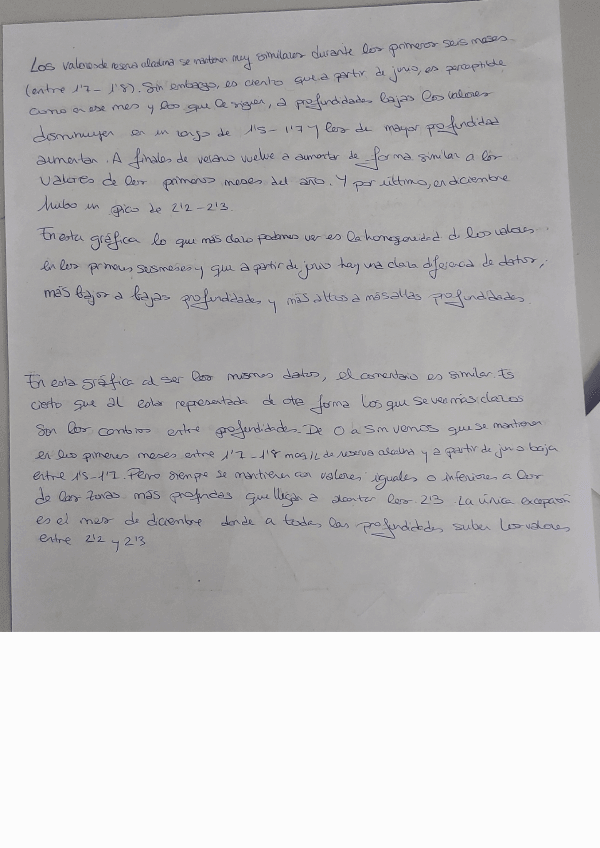 Los valores de reserva alcalina se mantienen muy similares durante los primeros seis meses
(entre 1'7 - 1'8). Sin embargo, es cierto que a partir de junio, es perceptible
como en ese mes y los que le siguen, a profundidades bajas los valores
disminuyen en un rango de 1'5 - 1'7 y los de mayor profundidad
aumentan. A finales de verano vuelve a aumentar de forma similar a los
valores de los primeros meses del año. Y por último, en diciembre
hubo un pico de 2'2 - 2'3.
En esta gráfica lo que más claro podemos ver es la homogeneidad de los valores
en los primeros seis meses y que a partir de junio hay una clara diferencia de datos,
más bajos a bajas profundidades y más altos a más altas profundidades.
En esta gráfica al ser los mismos datos, el comentario es similar. Es
cierto que al estar representada de otra forma los que se ven más claros
son los cambios entre profundidades. De 0 a 5m vemos que se mantienen
en los primeros meses entre 1'7 - 1'8 meq/L de reserva alcalina y a partir de junio baja
entre 1'5 - 1'7. Pero siempre se mantienen con valores iguales o inferiores a los
de las zonas más profundas que llegan a alcanzar los 2'3. La única excepción
es el mes de diciembre donde a todas las profundidades suben los valores
entre 2'2 y 2'3